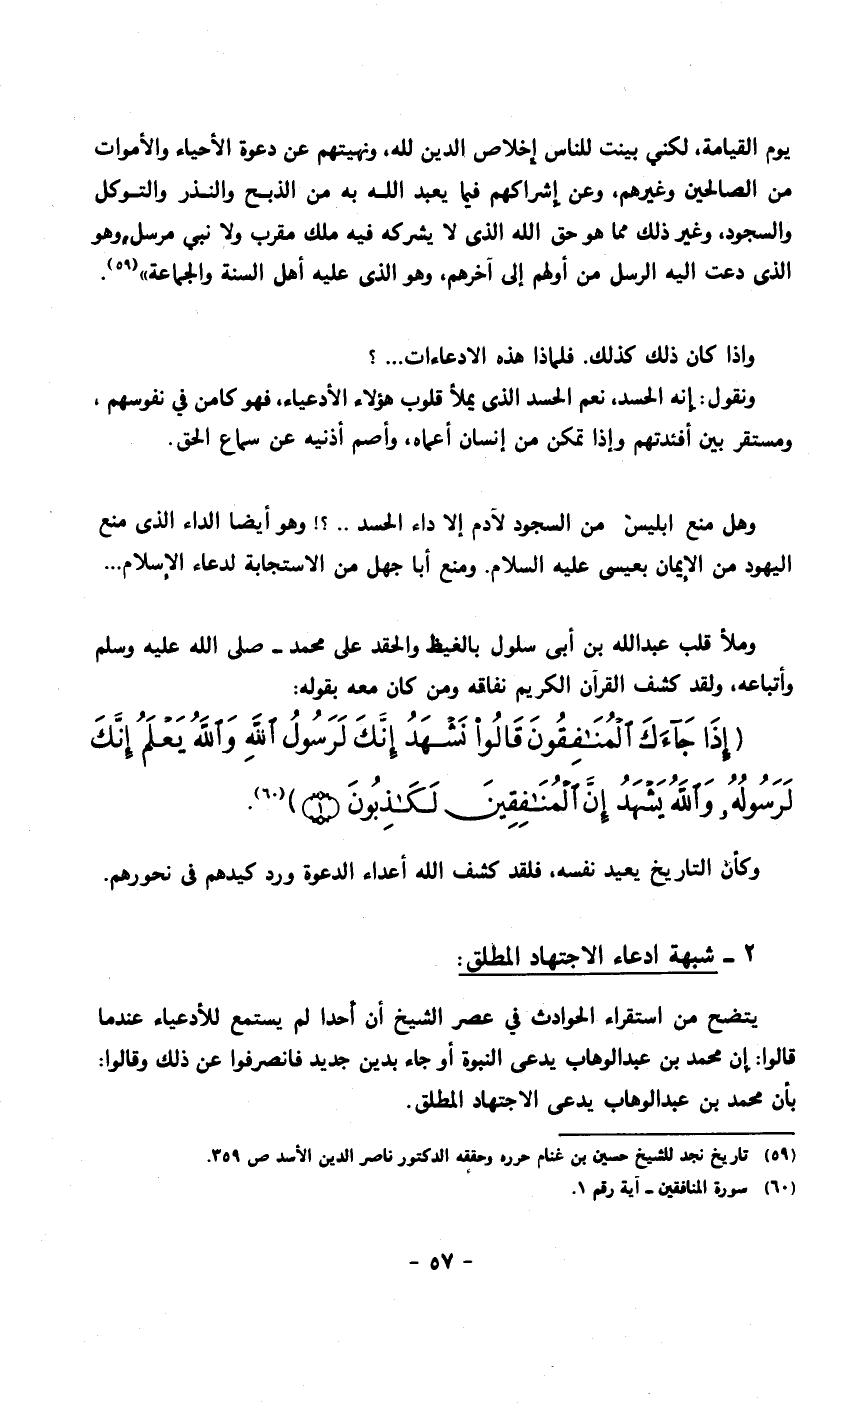 يوم القيامة، لكني بينت للناس إخلاص الدين لله، ونهيتهم عن دعوة الأحياء والأموات
من الصالحين وغيرهم، وعن إشراكهم فيما يعبد اللـه به من الذبـح والنـذر والتـوكل
والسجود، وغير ذلك مما هو حق الله الذى لا يشركه فيه ملك مقرب ولا نبي مرسل، وهو
الذى دعت اليه الرسل من أولهم إلى آخرهم، وهو الذى عليه أهل السنة والجماعة»(٥٩).
واذا كان ذلك كذلك. فلماذا هذه الادعاءات... ؟
ونقول: إنه الحسد، نعم الحسد الذى يملأ قلوب هؤلاء الأدعياء، فهو كامن في نفوسهم ،
ومستقر بين أفئدتهم وإذا تمكن من إنسان أعماه، وأصم أذنيه عن سماع الحق.
وهل منع ابليسَ من السجود لآدم إلا داء الحسد .. ؟! وهو أيضا الداء الذى منع
اليهود من الإيمان بعيسى عليه السلام. ومنع أبا جهل من الاستجابة لدعاء الإسلام...
وملأ قلب عبدالله بن أبى سلول بالغيظ والحقد على محمد ـ صلى الله عليه وسلم
وأتباعه، ولقد كشف القرآن الكريم نفاقه ومن كان معه بقوله:
(إِذَا جَآءَكَ ٱلْمُنَٰفِقُونَ قَالُوا۟ نَشْهَدُ إِنَّكَ لَرَسُولُ ٱللَّهِ وَٱللَّهُ يَعْلَمُ إِنَّكَ
لَرَسُولُهُۥ وَٱللَّهُ يَشْهَدُ إِنَّ ٱلْمُنَٰفِقِينَ لَكَٰذِبُونَ ١)(٦٠).
وكأن التاريخ يعيد نفسه، فلقد كشف الله أعداء الدعوة ورد كيدهم فى نحورهم.
٢ ـ شبهة ادعاء الاجتهاد المطلق:
يتضح من استقراء الحوادث في عصر الشيخ أن أحدا لم يستمع للأدعياء عندما
قالوا: إن محمد بن عبدالوهاب يدعى النبوة أو جاء بدين جديد فانصرفوا عن ذلك وقالوا:
بأن محمد بن عبدالوهاب يدعى الاجتهاد المطلق.
(٥٩) تاريخ نجد للشيخ حسين بن غنام حرره وحققه الدكتور ناصر الدين الأسد ص ٣٥٩.
(٦٠) سورة المنافقين ـ آية رقم ١.
- ٥٧ -